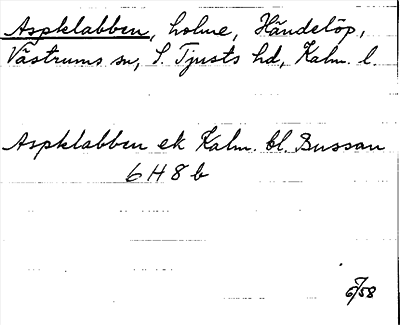 Aspklabben, holme, Händelöp,
Västrums sn, S. Tjusts hd, Kalm. l.
Aspklabben ek Kalm. bl. Bussan
6 H 8 b
6/7 58